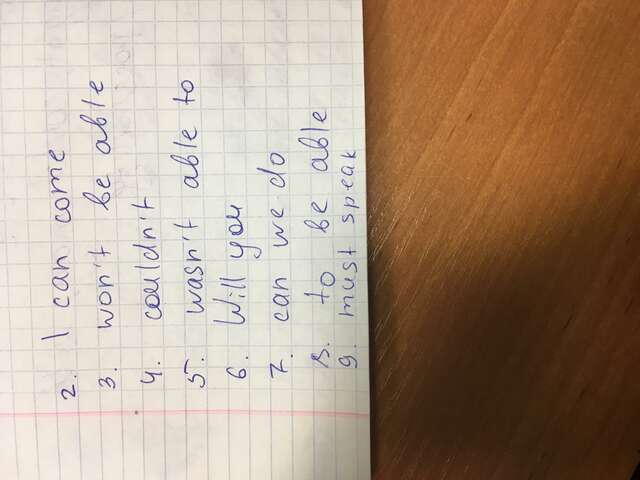 2. I can come
3. won't be able
4. couldn't
5. wasn't able to
6. Will you
7. can we do
8. to be able
9. must speak